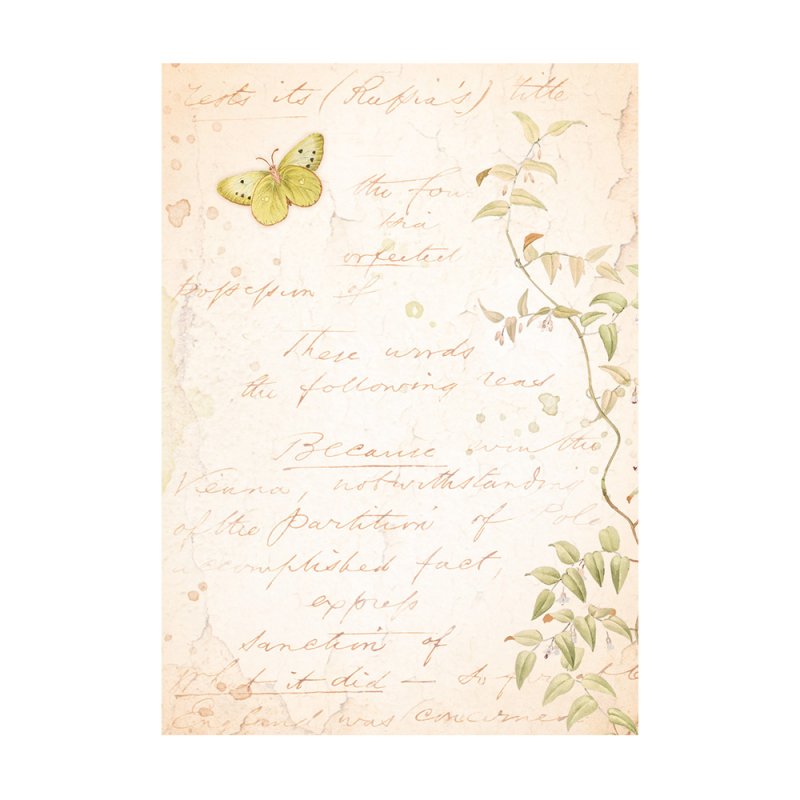 rests its (Russia's) title
the fou
orfected
possession of
These words
the following reas
Because in the
Vienna, notwithstanding
of the "partition" of Pola
accomplished fact,
express
sanction of
What it did —
England was concerned